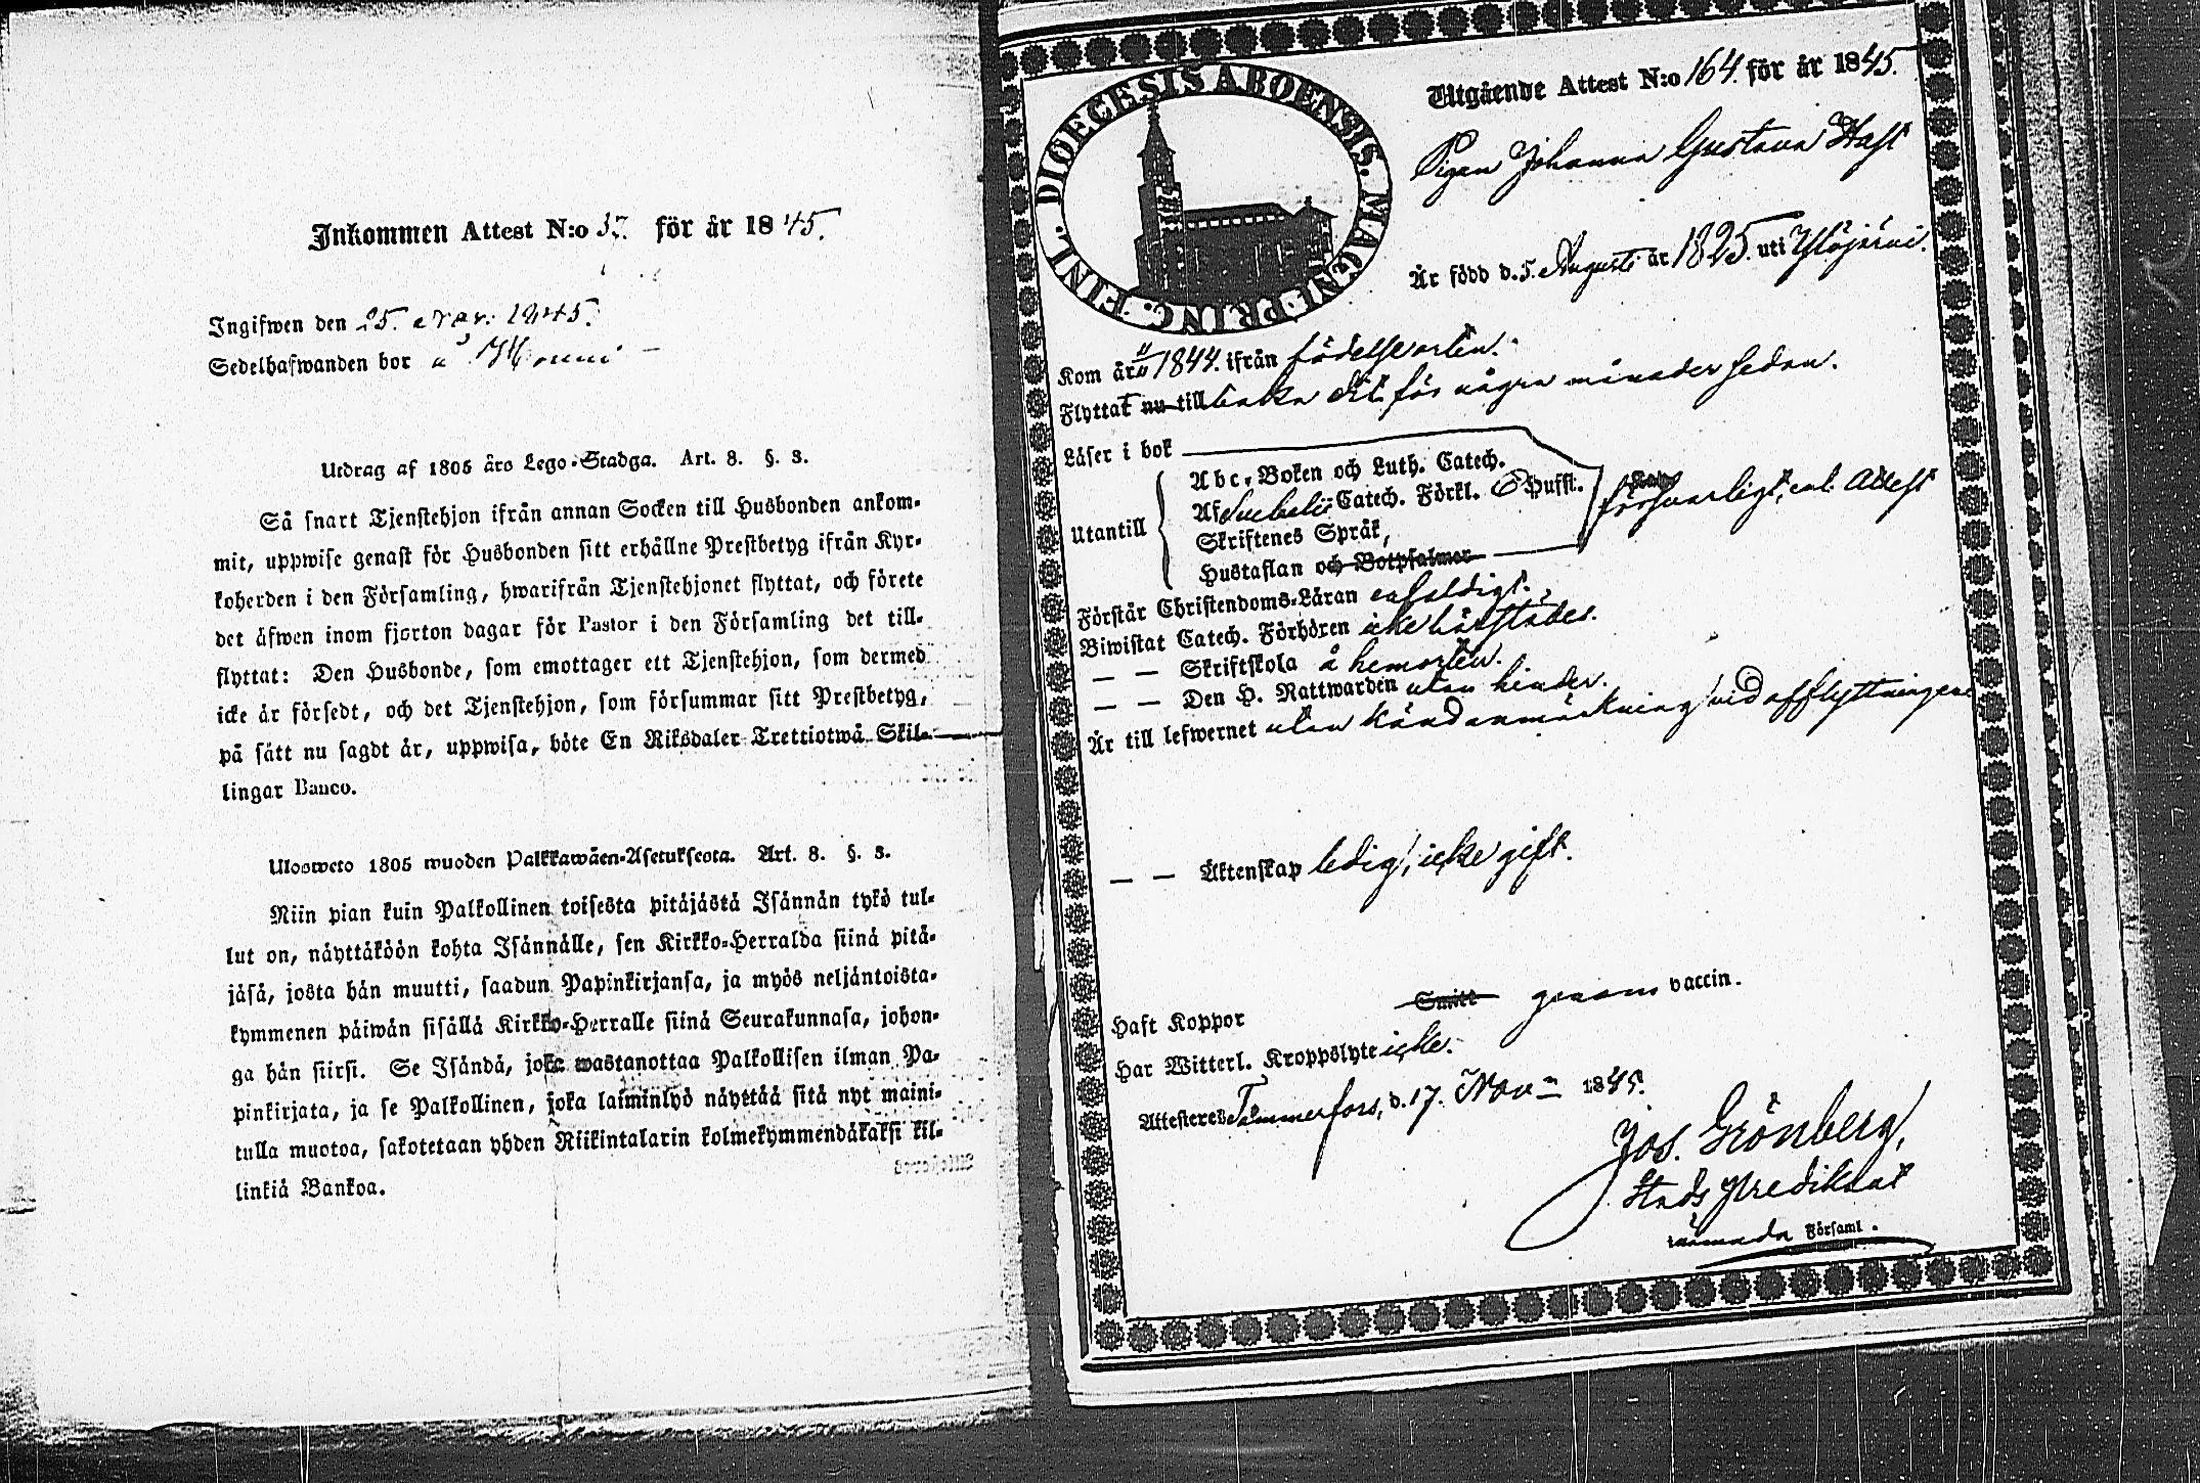 Inkommen Attest N:o 37. för år 1845.
Ingifwen den 25. 1845.
Sedelhafwanden bor
Utdrag af 1805 års Lego-Stadga. Art. 8. §. 3.
Så snart Tjenstehjon ifrån annan Socken till Husbonden ankom-
mit, uppwise genast för Husbonden sitt erhållne Prestbetyg ifrån Kyr-
koherden i den Församling, hwarifrån Tjenstehjonet flyttat, och förete
det äfwen inom fjorton dagar för Pastor i den Församling det till-
flyttat: Den Husbonde, som emottager ett Tjenstehjon, som dermed
icke är försedt, och det Tjenstehjon, som försummar sitt Prestbetyg,
på sätt nu sagdt är, uppwisa, böte En Riksdaler Trettiotwå Skil-
lingar Banco.
Ulosweto 1805 wuoden Palkkawäen-Asetuksesta. Art. 8. §. 3.
Niin pian kuin Palkollinen toisesta pitäjästä Isännän tykö tul-
lut on, näyttäköön kohta Isännälle, sen Kirkko-Herralda siinä pitä-
jäsä, josta hän muutti, saadun Papinkirjansa, ja myös neljäntoista-
kymmenen päiwän sisällä Kirkko-Herralle siinä Seurakunnasa, johon-
ga hän siirsi. Se Isändä, joka wastanottaa Palkollisen ilman Pa-
pinkirjata, ja se Palkollinen, joka laiminlyö näyttää sitä nyt maini-
tulla muotoa, sakotetaan yhden Riikintalarin kolmekymmendäkaksi kil-
linkiä Bankoa.
DIOECESIS ABOENSIS. MAGNI PRINC. FINL.
Utgående Attest N:o 164. för år 1845.
Pigan Johanna Gustava Hast
Är född d. 5. Augusti år 1825. uti Ylöjärvi.
Kom år 1844. ifrån födelseorten.
Flyttat nu till baka dit för några månader sedan.
Läser i bok
Abc-Boken och Luth. Catech.
Utantill
Af Svebelii Catech. Förkl. Hufst.
försvarligt, enl. Attest
Skriftenes Språk,
Hustaflan och Botpsalmer
Förstår Christendoms-Läran enfaldigt.
Biwistat Catech. Förhören icke härstädes.
— — Skriftskola å hemorten.
— — Den H. Nattwarden utan hinder.
Är till lefwernet utan känd anmärkning vid afflyttningen
— — Äktenskap ledig, icke gift.
Haft Koppor Smitt genom vaccin.
Har Witterl. Kroppslyte icke.
Attesteres Tammerfors, d. 17. Nov. 1845.
Jos. Grönberg,
Stads Predikant
Församl.